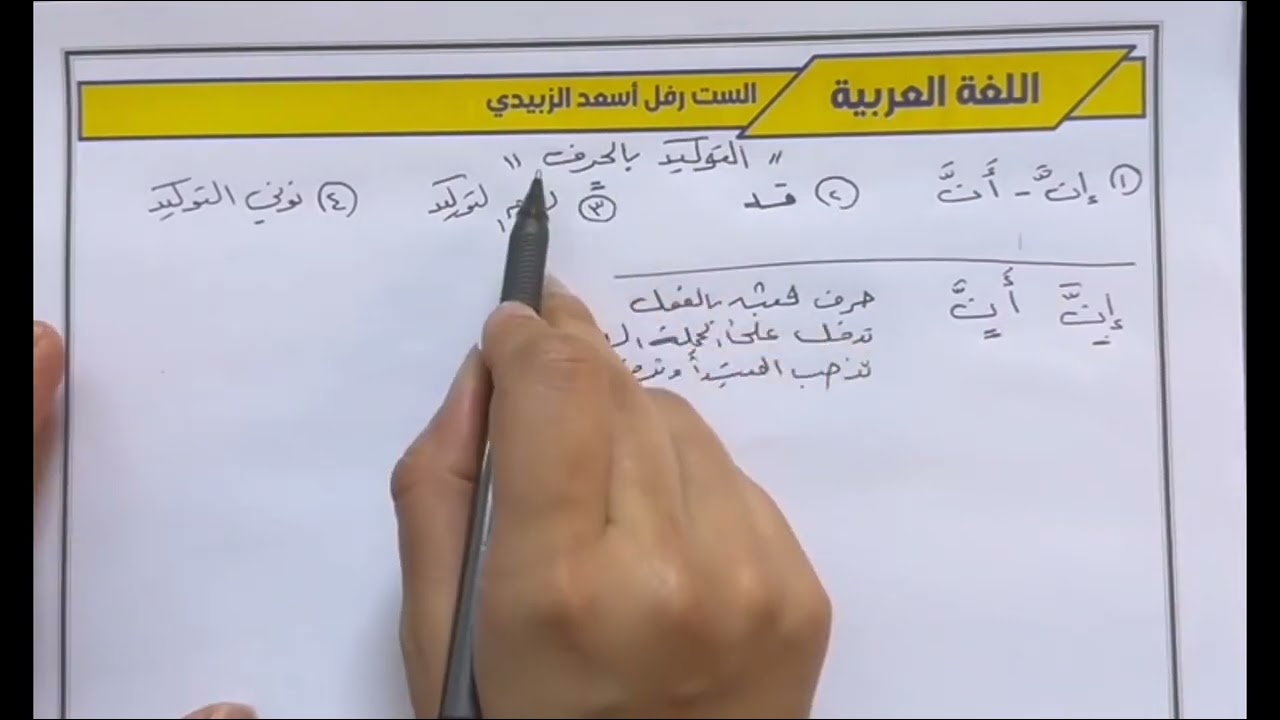 اللغة العربية
الست رفل أسعد الزبيدي
" التوكيد بالحرف "
١ إنَّ - أَنَّ ٢ قد ٣ لتوكيد ٤ نوني التوكيد
إنَّ أنَّ
حرف مشبه بالفعل
تدخل على الجملة
تنصب المبتدأ